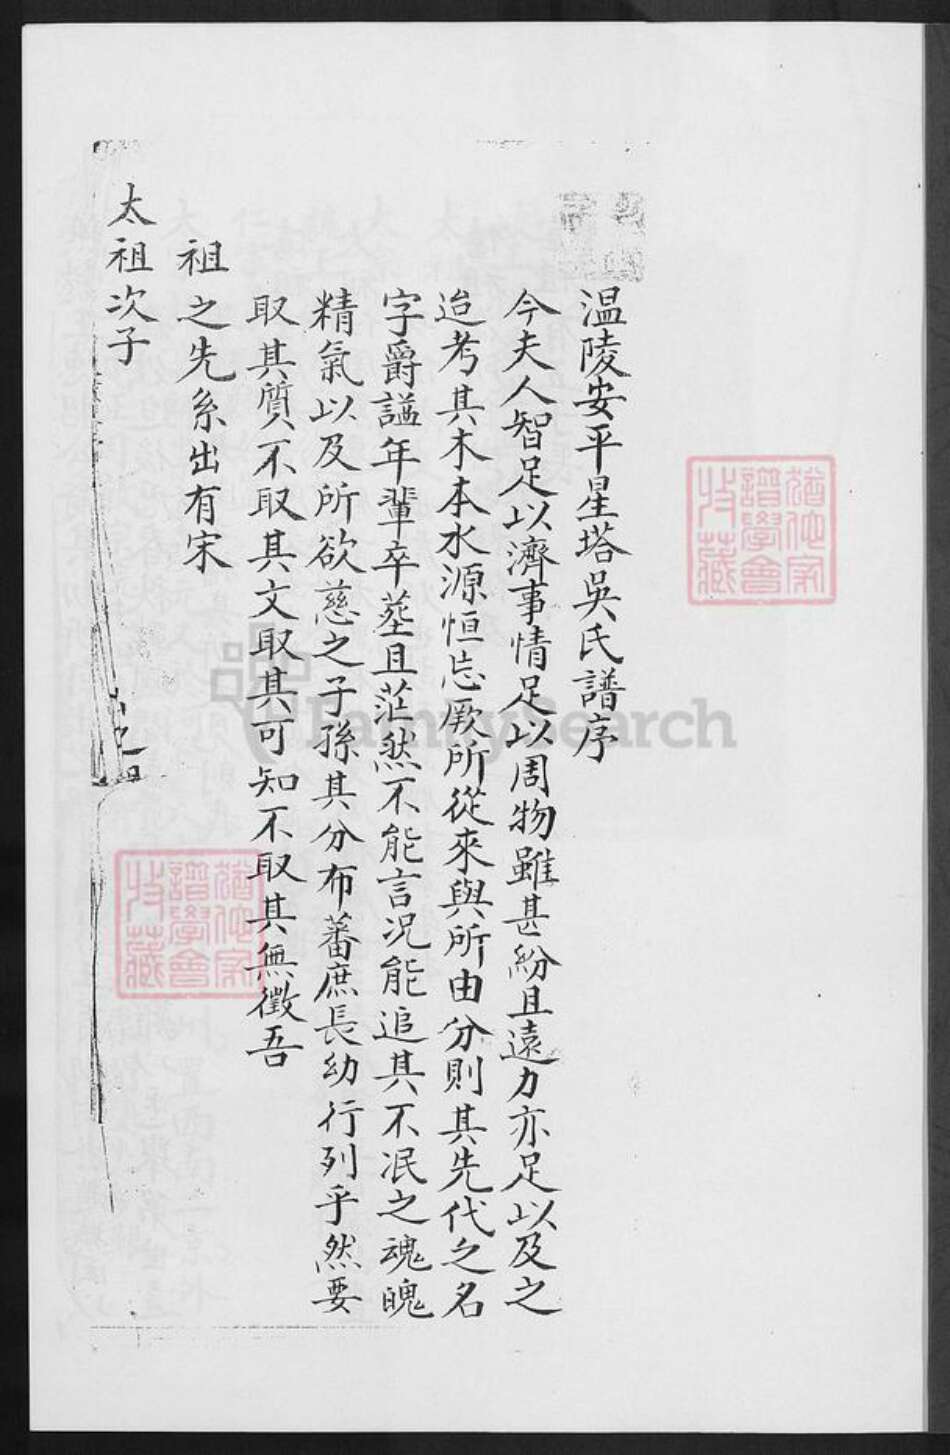 温陵安平星塔吳氏譜序
今夫人智足以濟事情足以周物雖甚紛且遠力亦足以及之
迨考其木本水源恒忘厥所從來與所由分則其先代之名
字爵謚年輩卒塟且茫然不能言況能追其不冺之魂魄
精氣以及所欲慈之子孫其分布蕃庶長幼行列乎然要
取其質不取其文取其可知不取其無徵吾
祖之先系出有宋
太祖次子
譜學會
藏
譜學會
藏
FamilySearch